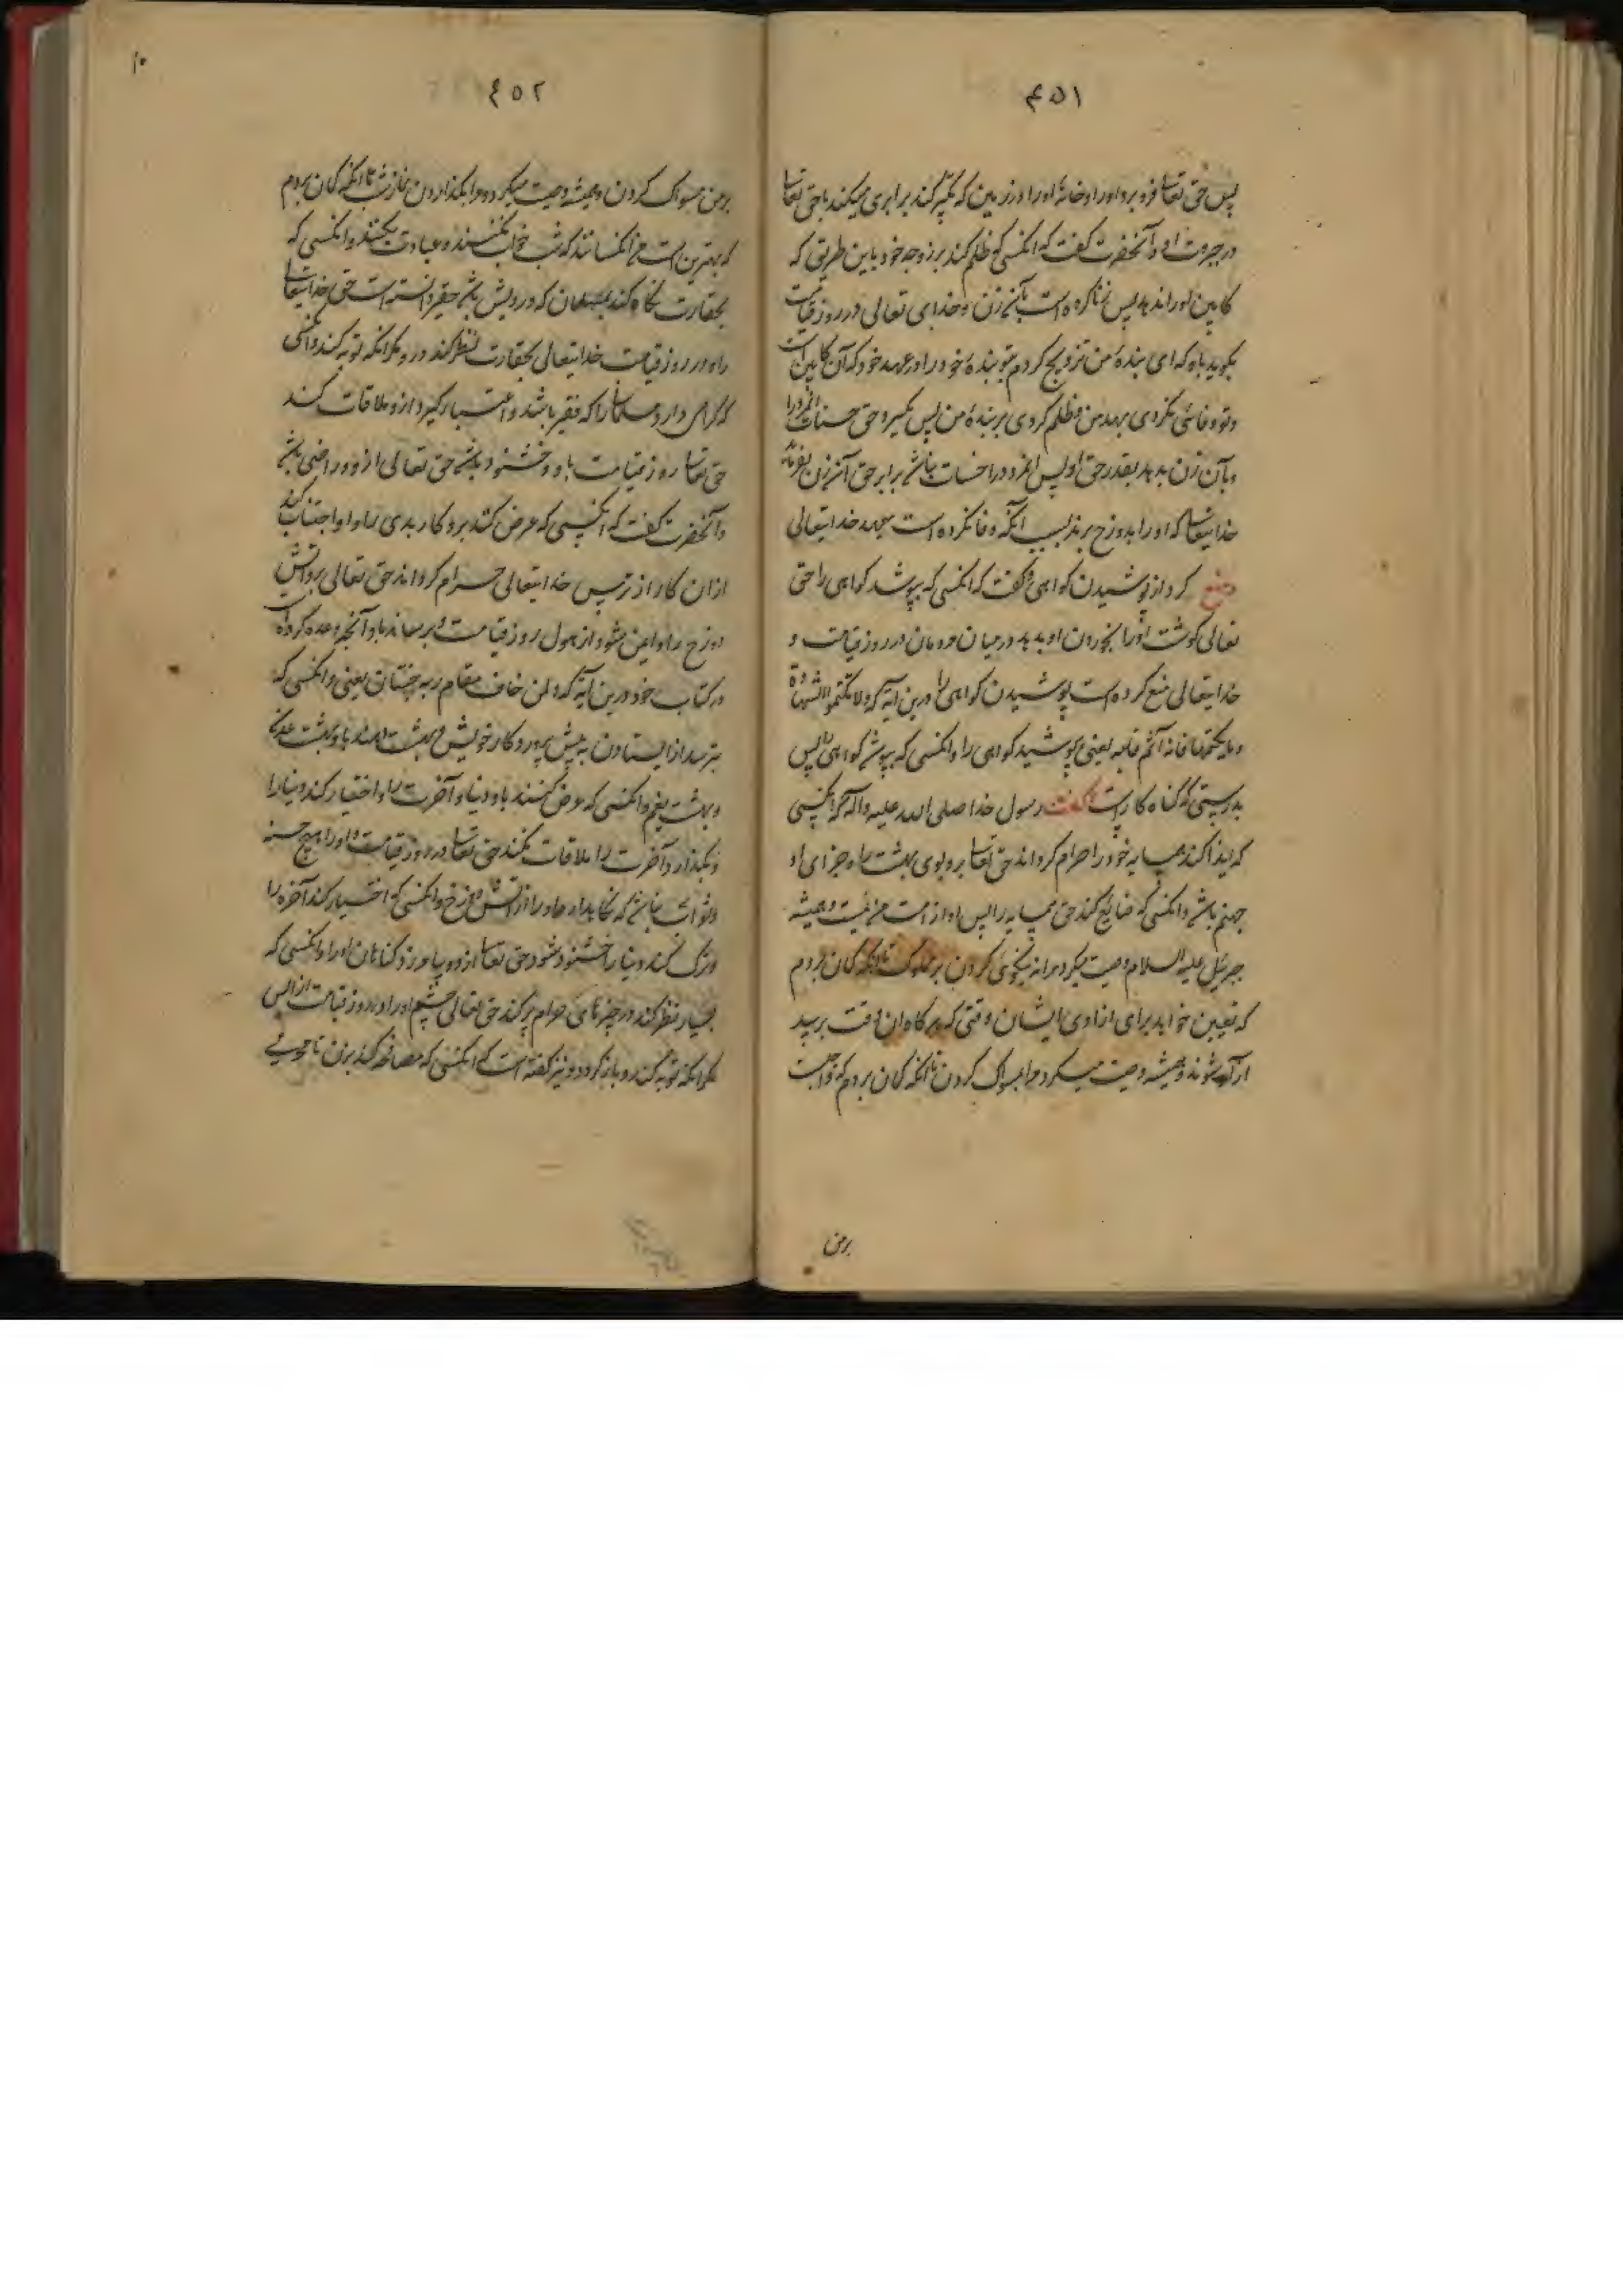 ۴۵۱
پس حق تعا فرو برد او را و خانهٔ او را در زمین که تکبر کند برابری میکند با حق تعا
در جبروت او و آنحضرت گفت که آنکسی که ظلم کند بر زوجه خود باین طریق که
کابین او را ندهد پس زنا کرده است بآن زن و خدای تعالی در روز قیامت
بگوید باو که ای بندهٔ من تزویج کردم بتو بندهٔ خود را در عهد خود که آن کابین است
و تو وفائی نکردی بعهد من و ظلم کردی بر بندهٔ من پس بگیرد حق حسنات آنمرد را
و بآن زن بدهد بقدر حق او پس آنمرد را حسنات نباشد برابر حق آن زن بفرماید
خدایتعا که او را بدوزخ برند بسبب آنکه وفا نکرده است بعهد خدایتعالی
و منع کرد از پوشیدن کواهی و گفت که آنکسی که بپوشد کواهی را حق
تعالی کوشت او را بخوردن او بدهد در میان مردمان در روز قیامت و
خدایتعالی منع کرده است پوشیدن کواهی را درین آیه که ولا تکتموا الشهادة
و من یکتمها فانه آثم قلبه یعنی مپوشید کواهی را و آنکسی که بپوشد کواهی را پس
بدرستی که گناه کار است گفت رسول خدا صلی الله علیه و آله که آنکسی
که ایذا کند همسایه خود را حرام کرداند حق تعا برو بوی بهشت را و جزای او
جهنم باشد و آنکسی که ضایع کند حق همسایه را پس او از امت من نیست و همیشه
جبرئیل علیه السلام وصیت میکرد مرا به نیکوئی کردن بر مملوک تا آنکه کمان بردم
که تعیین خواهد برای ازادی ایشان وقتی که هر کاه آن وقت برسد
ازاد شوند و همیشه وصیت میکرد مرا بمسواک کردن تا آنکه کمان بردم که واجب است
برمن
۱۰
٤٥٢
بر من مسواک کردن و همیشه وصیت میکرد مرا بکذاردن نماز شب تا آنکه کمان بردم
که بهترین امت من آنکسانند که شب خواب نکنند و عبادت بکنند و آنکسی که
بحقارت نکاه کند بمسلمان که درویش باشد حقیر دانسته است حق خدایتعا
را و در روز قیامت خدایتعالی بحقارت نظر کند درو مکر آنکه توبه کند و آنکسی
که کرامی دارد مسلمان را که فقیر باشد و اعتبار کیرد ازو ملاقات کند
حق تعا روز قیامت باو و خشنود باشد حق تعالی ازو و راضی باشد
و آنحضرت گفت که آنکسی که عرض کنند برو کار بدی را و او اجتناب کند
از آن کار از ترس خدایتعالی حرام کرداند حق تعالی برو آتش
دوزخ را و ایمن شود از هول روز قیامت و برساند باو آنچه وعده کرده است
در کتاب خود درین آیه که ولمن خاف مقام ربه جنتان یعنی و آنکسی که
بترسد از ایستادن به پیش پروردکار خویش دو بهشت دهند باو بهشت عدن
و بهشت نعیم و آنکسی که عرض کنند باو دنیا و آخرت را و اختیار کند دنیا را
و بکذارد آخرت را ملاقات بکند حق تعا در روز قیامت و او را هیچ حسنه
و ثواب نباشد که نکاهدارد او را از آتش دوزخ و آنکسی که اختیار کند آخرة را
و ترک کند دنیا را خشنود شود حق تعا ازو و بیامرزد کناهان او را و آنکسی که
بسیار نظر کند در چیزهای حرام پر کند حق تعالی چشم او را در روز قیامت از آتش
مکر آنکه توبه کند و باز کردد و نیز گفته است که آنکسی که مصافحه کند بزن نامحرمی